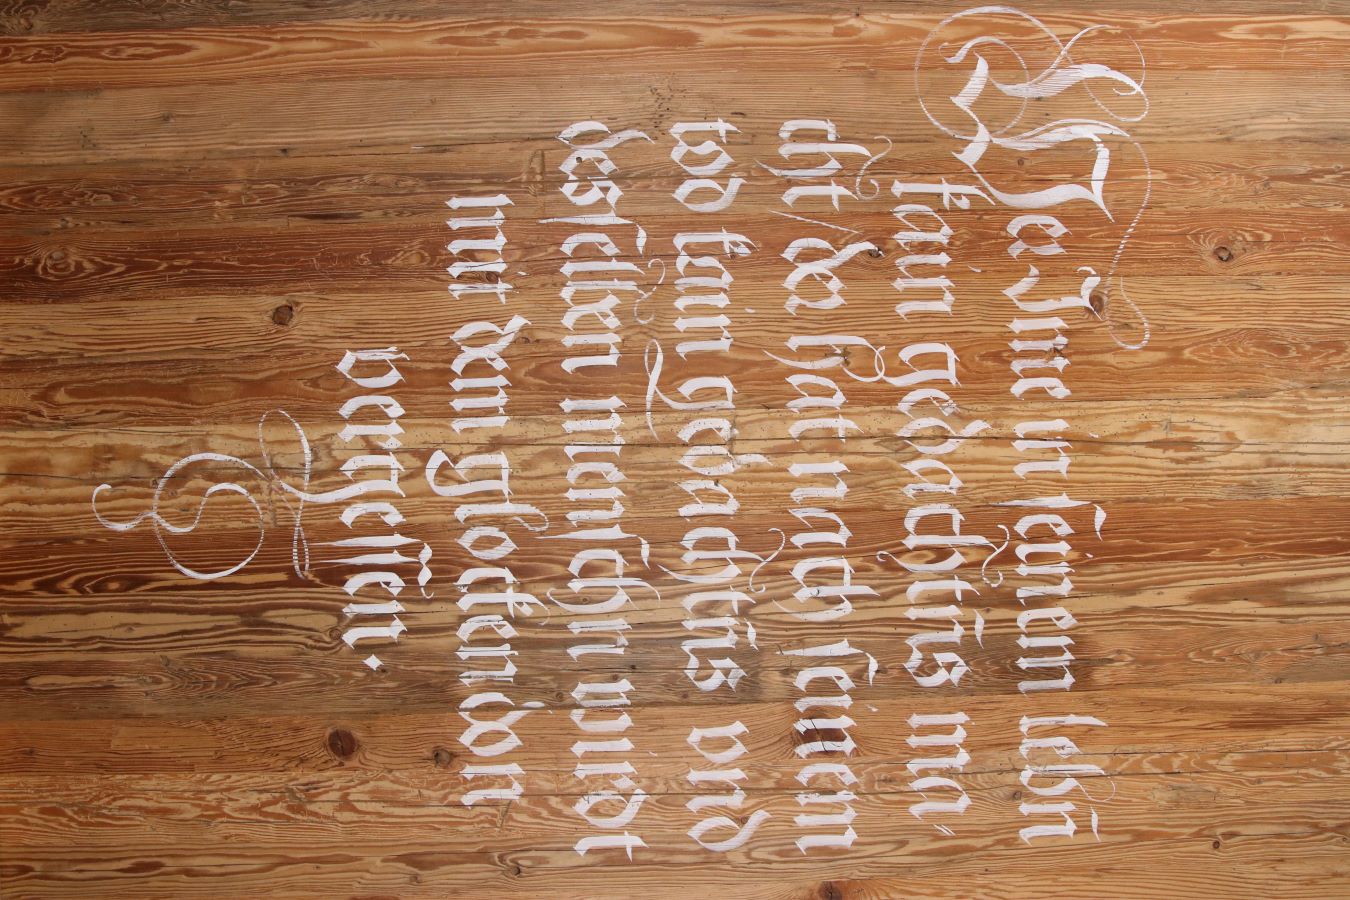 Wer Ime in seinem lebñ
kain gedachtñs ma-
cht / der hat nach seinem
tod kain gedachtñs vnd
desselben menschn wirdt
mit dem glockendon
vergessen.